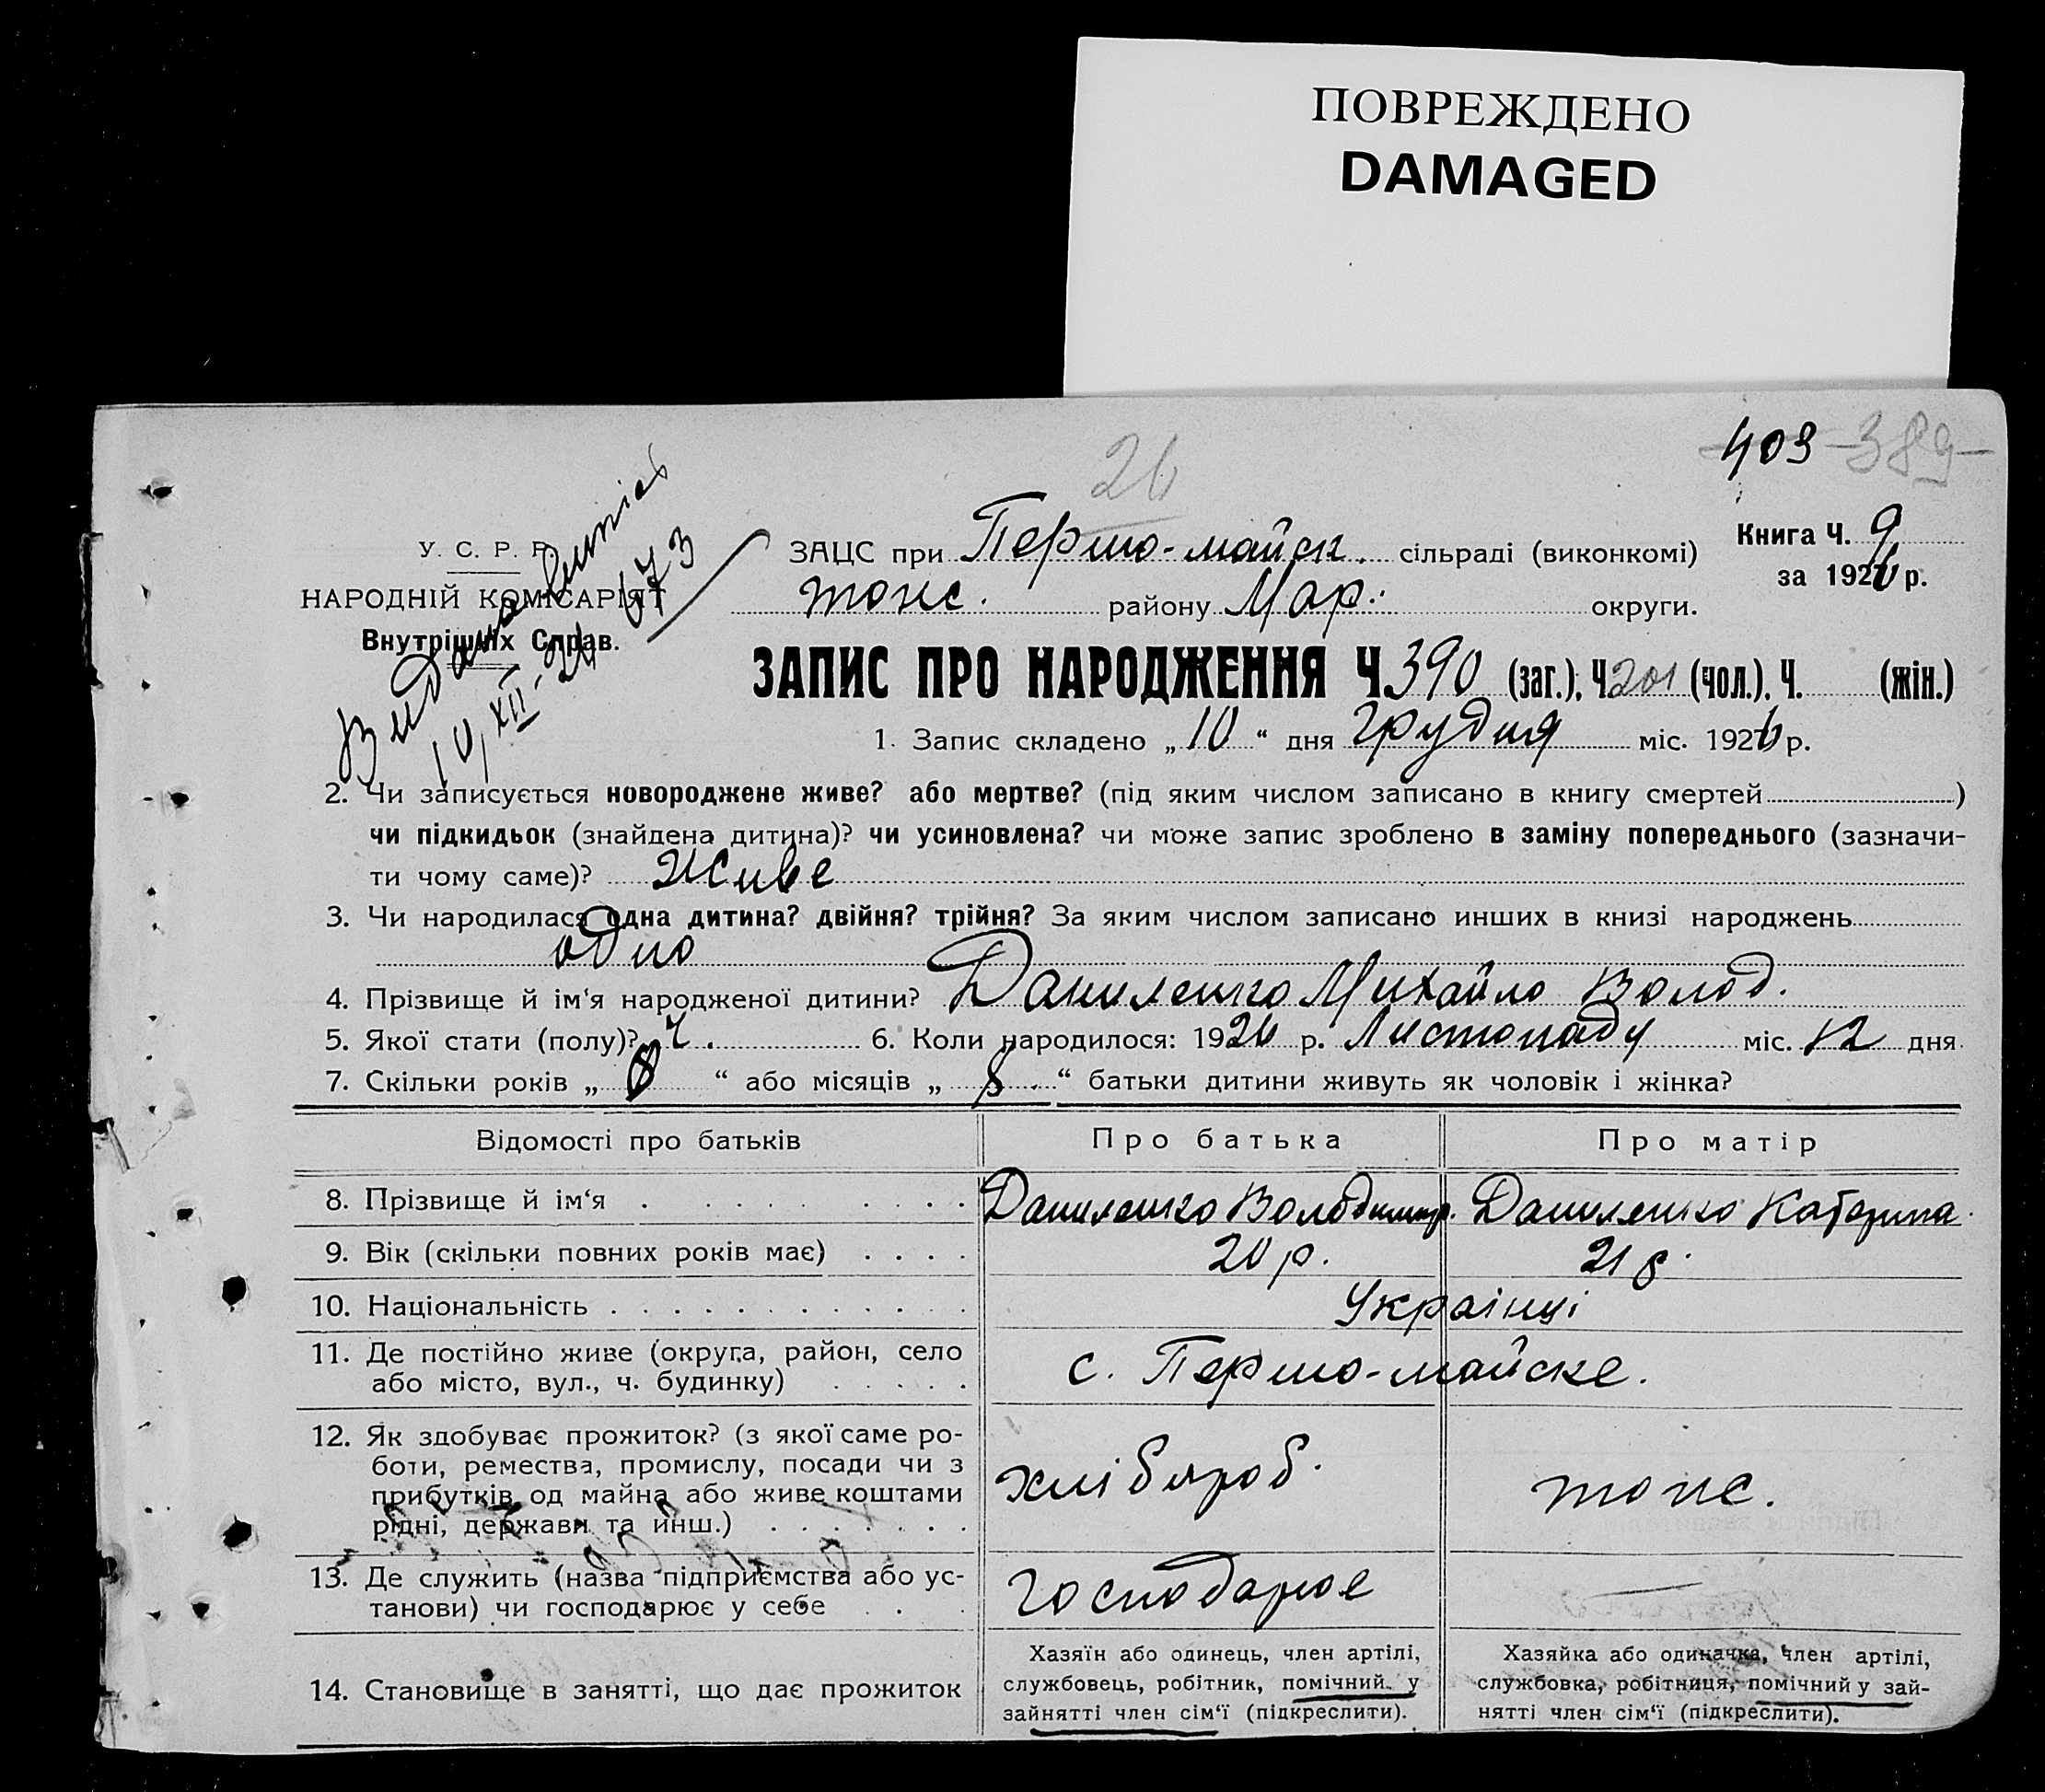 ПОВРЕЖДЕНО
DAMAGED
409 389
26
У. С. Р. Р.
НАРОДНІЙ КОМІСАРІЯТ
Внутрішніх Справ.
Видана виписъ
10/XII-26 673
Книга Ч. 9
за 1926 р.
ЗАЦС при Першо-майск. сільраді (виконкомі)
тоже. району Мар. округи.
ЗАПИС ПРО НАРОДЖЕННЯ Ч. 390 (заг.), Ч 201 (чол.), Ч. (жін.)
1. Запис складено „ 10 “ дня грудня міс. 1926 р.
2. Чи записується новороджене живе? або мертве? (під яким числом записано в книгу смертей )
чи підкидьок (знайдена дитина)? чи усиновлена? чи може запис зроблено в заміну попереднього (зазначи-
ти чому саме)? Живе
3. Чи народилася одна дитина? двійня? трійня? За яким числом записано инших в книзі народжень
одно
4. Прізвище й ім‘я народженої дитини? Даниленко Михайло Волод.
5. Якої стати (полу)? ч. 6. Коли народилося: 1926 р. Листопаду міс. 12 дня
7. Скільки років „ “ або місяців „ 8. “ батьки дитини живуть як чоловік і жінка?
Відомості про батьків Про батька Про матір
8. Прізвище й ім‘я . . . . . . . . Даниленко Володимир. Даниленко Катерина.
9. Вік (скільки повних років має) . . . . 20 р. 21 р.
10. Національність . . . . . . . . . . . . Українці
11. Де постійно живе (округа, район, село
або місто, вул., ч. будинку) . . . . . с. Першо-майске.
12. Як здобуває прожиток? (з якої саме ро-
боти, ремества, промислу, посади чи з
прибутків од майна або живе коштами
рідні, держави та инш.) . . . . . . . хлібороб. тоже.
13. Де служить (назва підприємства або ус-
танови) чи господарює у себе . . . господарює —
14. Становище в занятті, що дає прожиток
Хазяїн або одинець, член артілі,
службовець, робітник, помічний у
зайнятті член сім‘ї (підкреслити).
Хазяйка або одиначка, член артілі,
службовка, робітниця, помічний у зай-
нятті член сім‘ї (підкреслити).